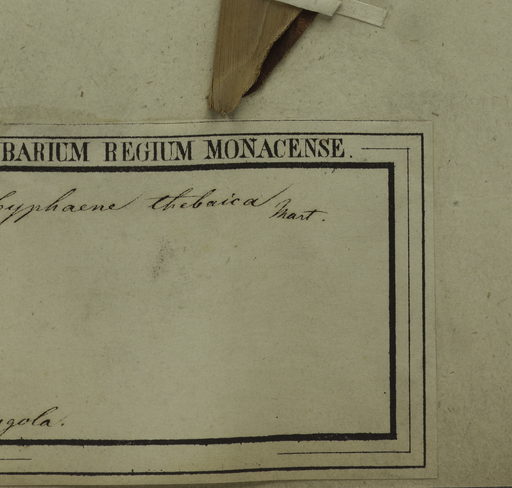 BARIUM REGIUM MONACENSE.
hyphaene thebaica Mart.
ngola.